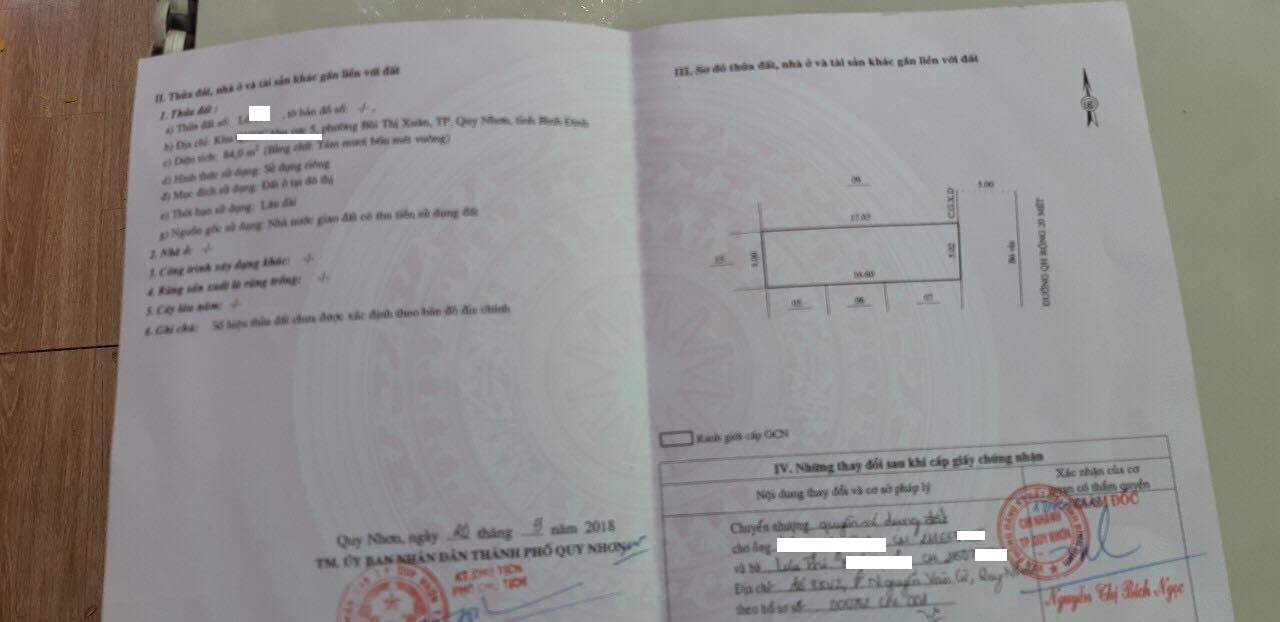 II. Thửa đất, nhà ở và tài sản khác gắn liền với đất
1. Thửa đất :
a) Thửa đất số: , tờ bản đồ số: -/- ,
b) Địa chỉ: Khu 5, phường Bùi Thị Xuân, TP. Quy Nhơn, tỉnh Bình Định
c) Diện tích: 84,0 m² (Bằng chữ: Tám mươi bốn mét vuông)
d) Hình thức sử dụng: Sử dụng riêng
đ) Mục đích sử dụng: Đất ở tại đô thị
e) Thời hạn sử dụng: Lâu dài
g) Nguồn gốc sử dụng: Nhà nước giao đất có thu tiền sử dụng đất
2. Nhà ở: -/-
3. Công trình xây dựng khác: -/-
4. Rừng sản xuất là rừng trồng: -/-
5. Cây lâu năm: -/-
6. Ghi chú: Số hiệu thửa đất chưa được xác định theo bản đồ địa chính
Quy Nhơn, ngày tháng 9 năm 2018
TM. ỦY BAN NHÂN DÂN THÀNH PHỐ QUY NHƠN
KT. CHỦ TỊCH
PHÓ CHỦ TỊCH
III. Sơ đồ thửa đất, nhà ở và tài sản khác gắn liền với đất
09
5.00
17.03
C.G.X.D
15
5.00
5.02
16.60
05
06
07
Bó vỉa
ĐƯỜNG QH RỘNG 20 MÉT
Ranh giới cấp GCN
IV. Những thay đổi sau khi cấp giấy chứng nhận
Nội dung thay đổi và cơ sở pháp lý
Xác nhận của cơ
quan có thẩm quyền
Chuyển nhượng quyền sử dụng đất
cho ông
và bà
Địa chỉ: P. Nguyễn Văn Cừ, Quy Nhơn
theo hồ sơ số:
GIÁM ĐỐC
CHI NHÁNH
TP QUY NHƠN
Nguyễn Thị Bích Ngọc